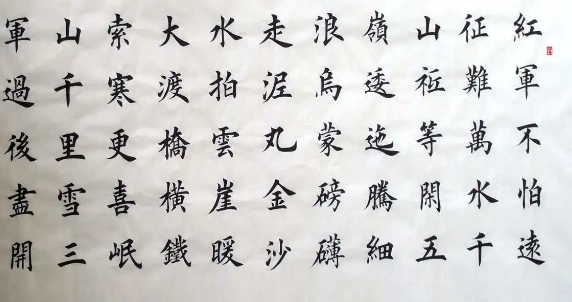 紅軍不怕遠
征難萬水千
山衹等閑五
嶺逶迤騰細
浪烏蒙磅礴
走泥丸金沙
水拍雲崖暖
大渡橋橫鐵
索寒更喜岷
山千里雪三
軍過後盡開